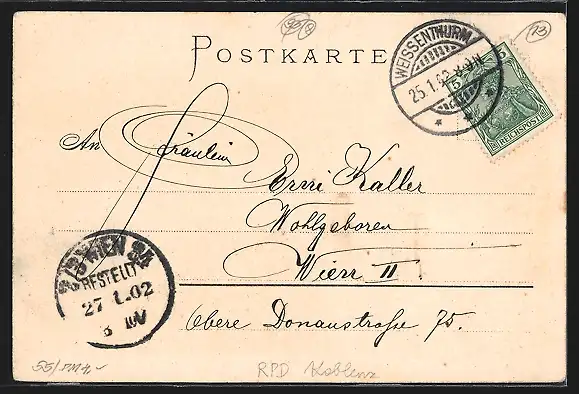 POSTKARTE
WEISSENTHURM
25.1.02.8-9N
5
REICHSPOST
An
Fräulein
Erni Kaller
Wohlgeboren
Wien II
Obere Donaustraße 75.
WIEN
BESTELLT
27 1.02
RPD Koblenz